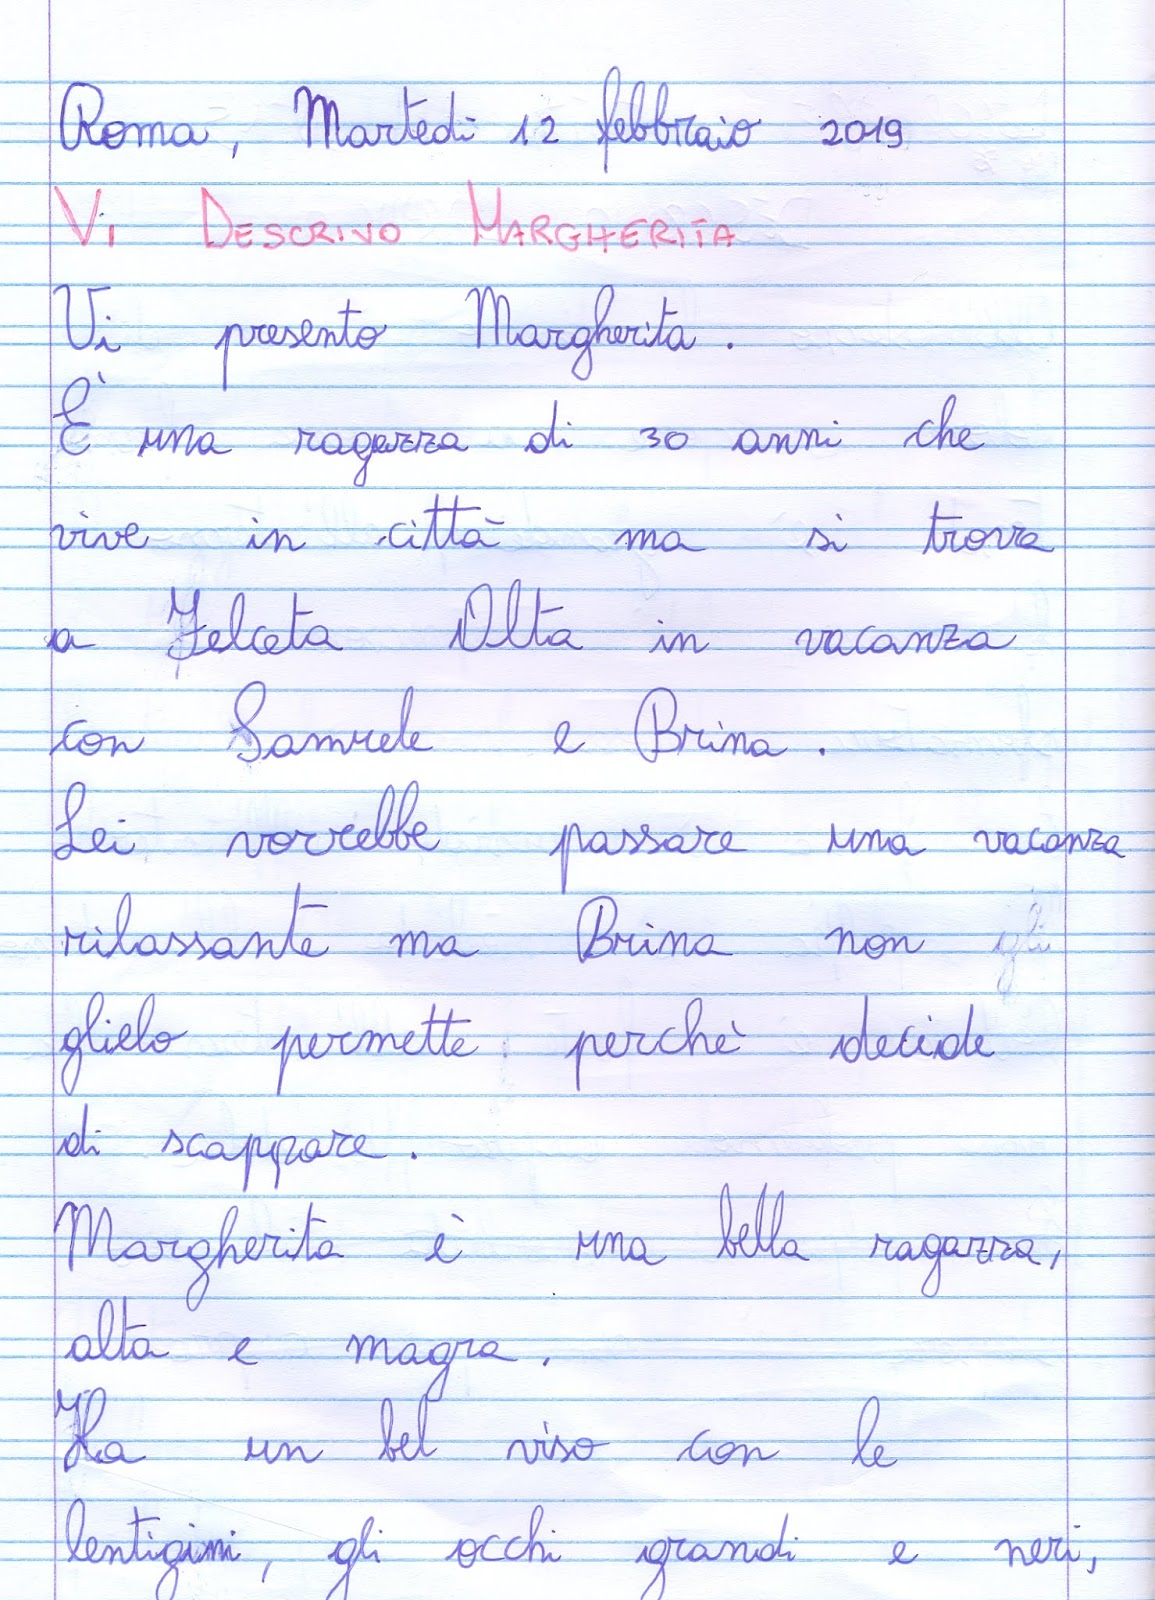 Roma, Martedì 12 febbraio 2019
VI DESCRIVO MARGHERITA
Vi presento Margherita.
È una ragazza di 30 anni che
vive in città ma si trova
a Felceta Alta in vacanza
con Samuele e Brina.
Lei vorrebbe passare una vacanza
rilassante ma Brina non gli
glielo permette perchè decide
di scappare.
Margherita è una bella ragazza,
alta e magra.
Ha un bel viso con le
lentigini, gli occhi grandi e neri,